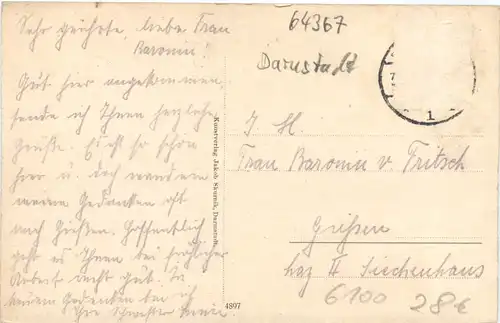 Sehr geehrte, liebe Frau
Baronin!
Gut hier angekommen,
sende ich Ihnen herzliche
Grüße. Es ist so schön
hier u. doch wandern
meine Gedanken oft
nach Gießen. Hoffentlich
geht es Ihnen bei fröhlicher
Arbeit recht gut. In
meinen Gedanken bei ich
Ihre Schwester
Kunstverlag Jakob Skurnik, Darmstadt.
4807
64367
Darmstadt
1
I. H.
Frau Baronin v. Fritsch
Gießen
Laz II Siechenhaus
6100
28€